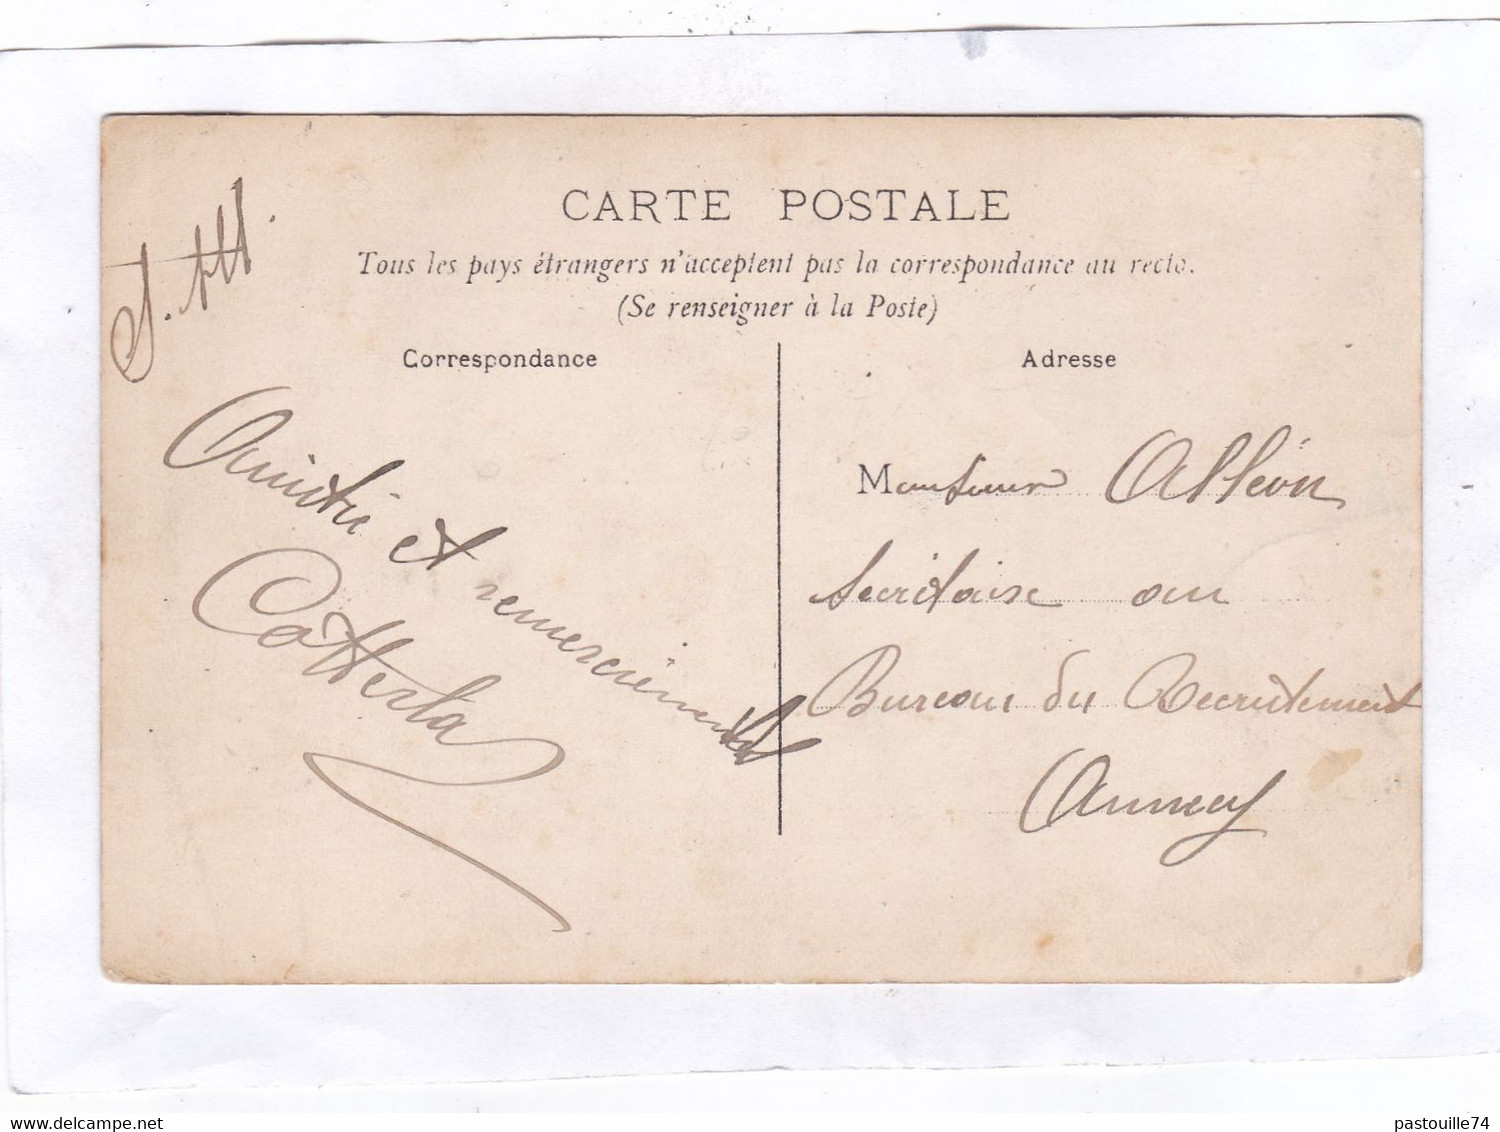 CARTE POSTALE
Tous les pays étrangers n'acceptent pas la correspondance au recto.
(Se renseigner à la Poste)
Correspondance
Adresse
Amitié et remerciements
Cotterla
Monsieur Alléon
Secrétaire au
Bureau du Recrutement
Annecy
delcampe.net
pastouille74